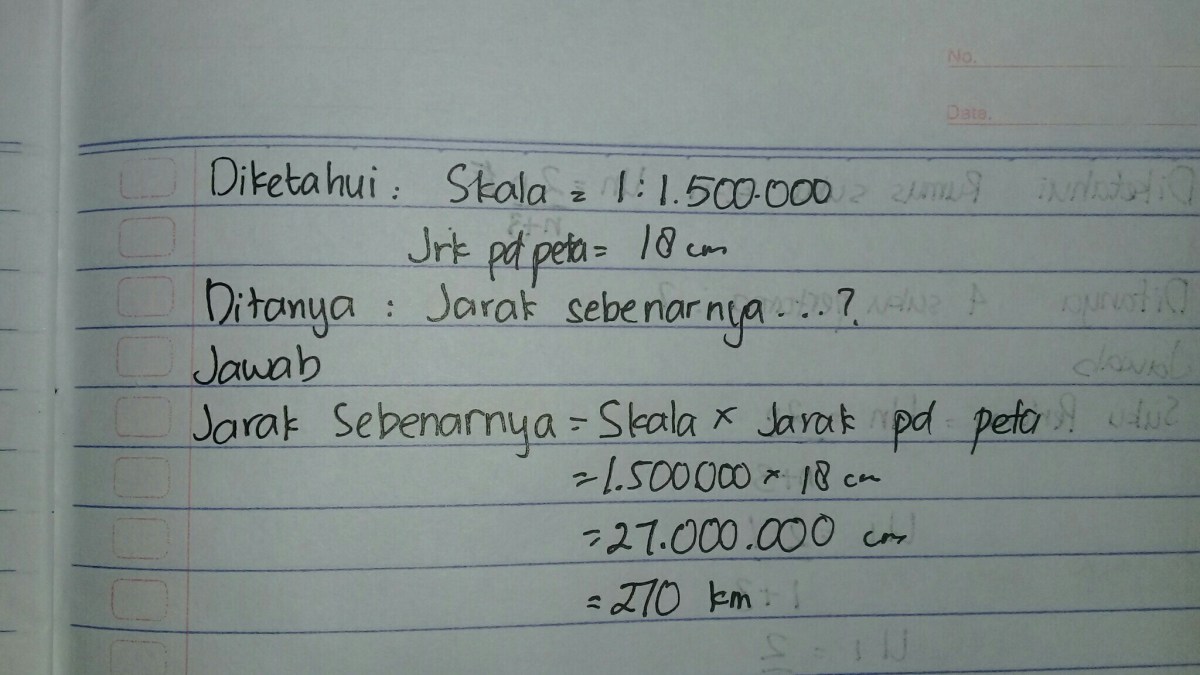 No.
Date.
Diketahui : Skala = 1 : 1.500.000
Jrk pd peta = 18 cm
Ditanya : Jarak sebenarnya...?
Jawab
Jarak Sebenarnya = Skala × Jarak pd peta
= 1.500000 × 18 cm
= 27.000.000 cm
= 270 km